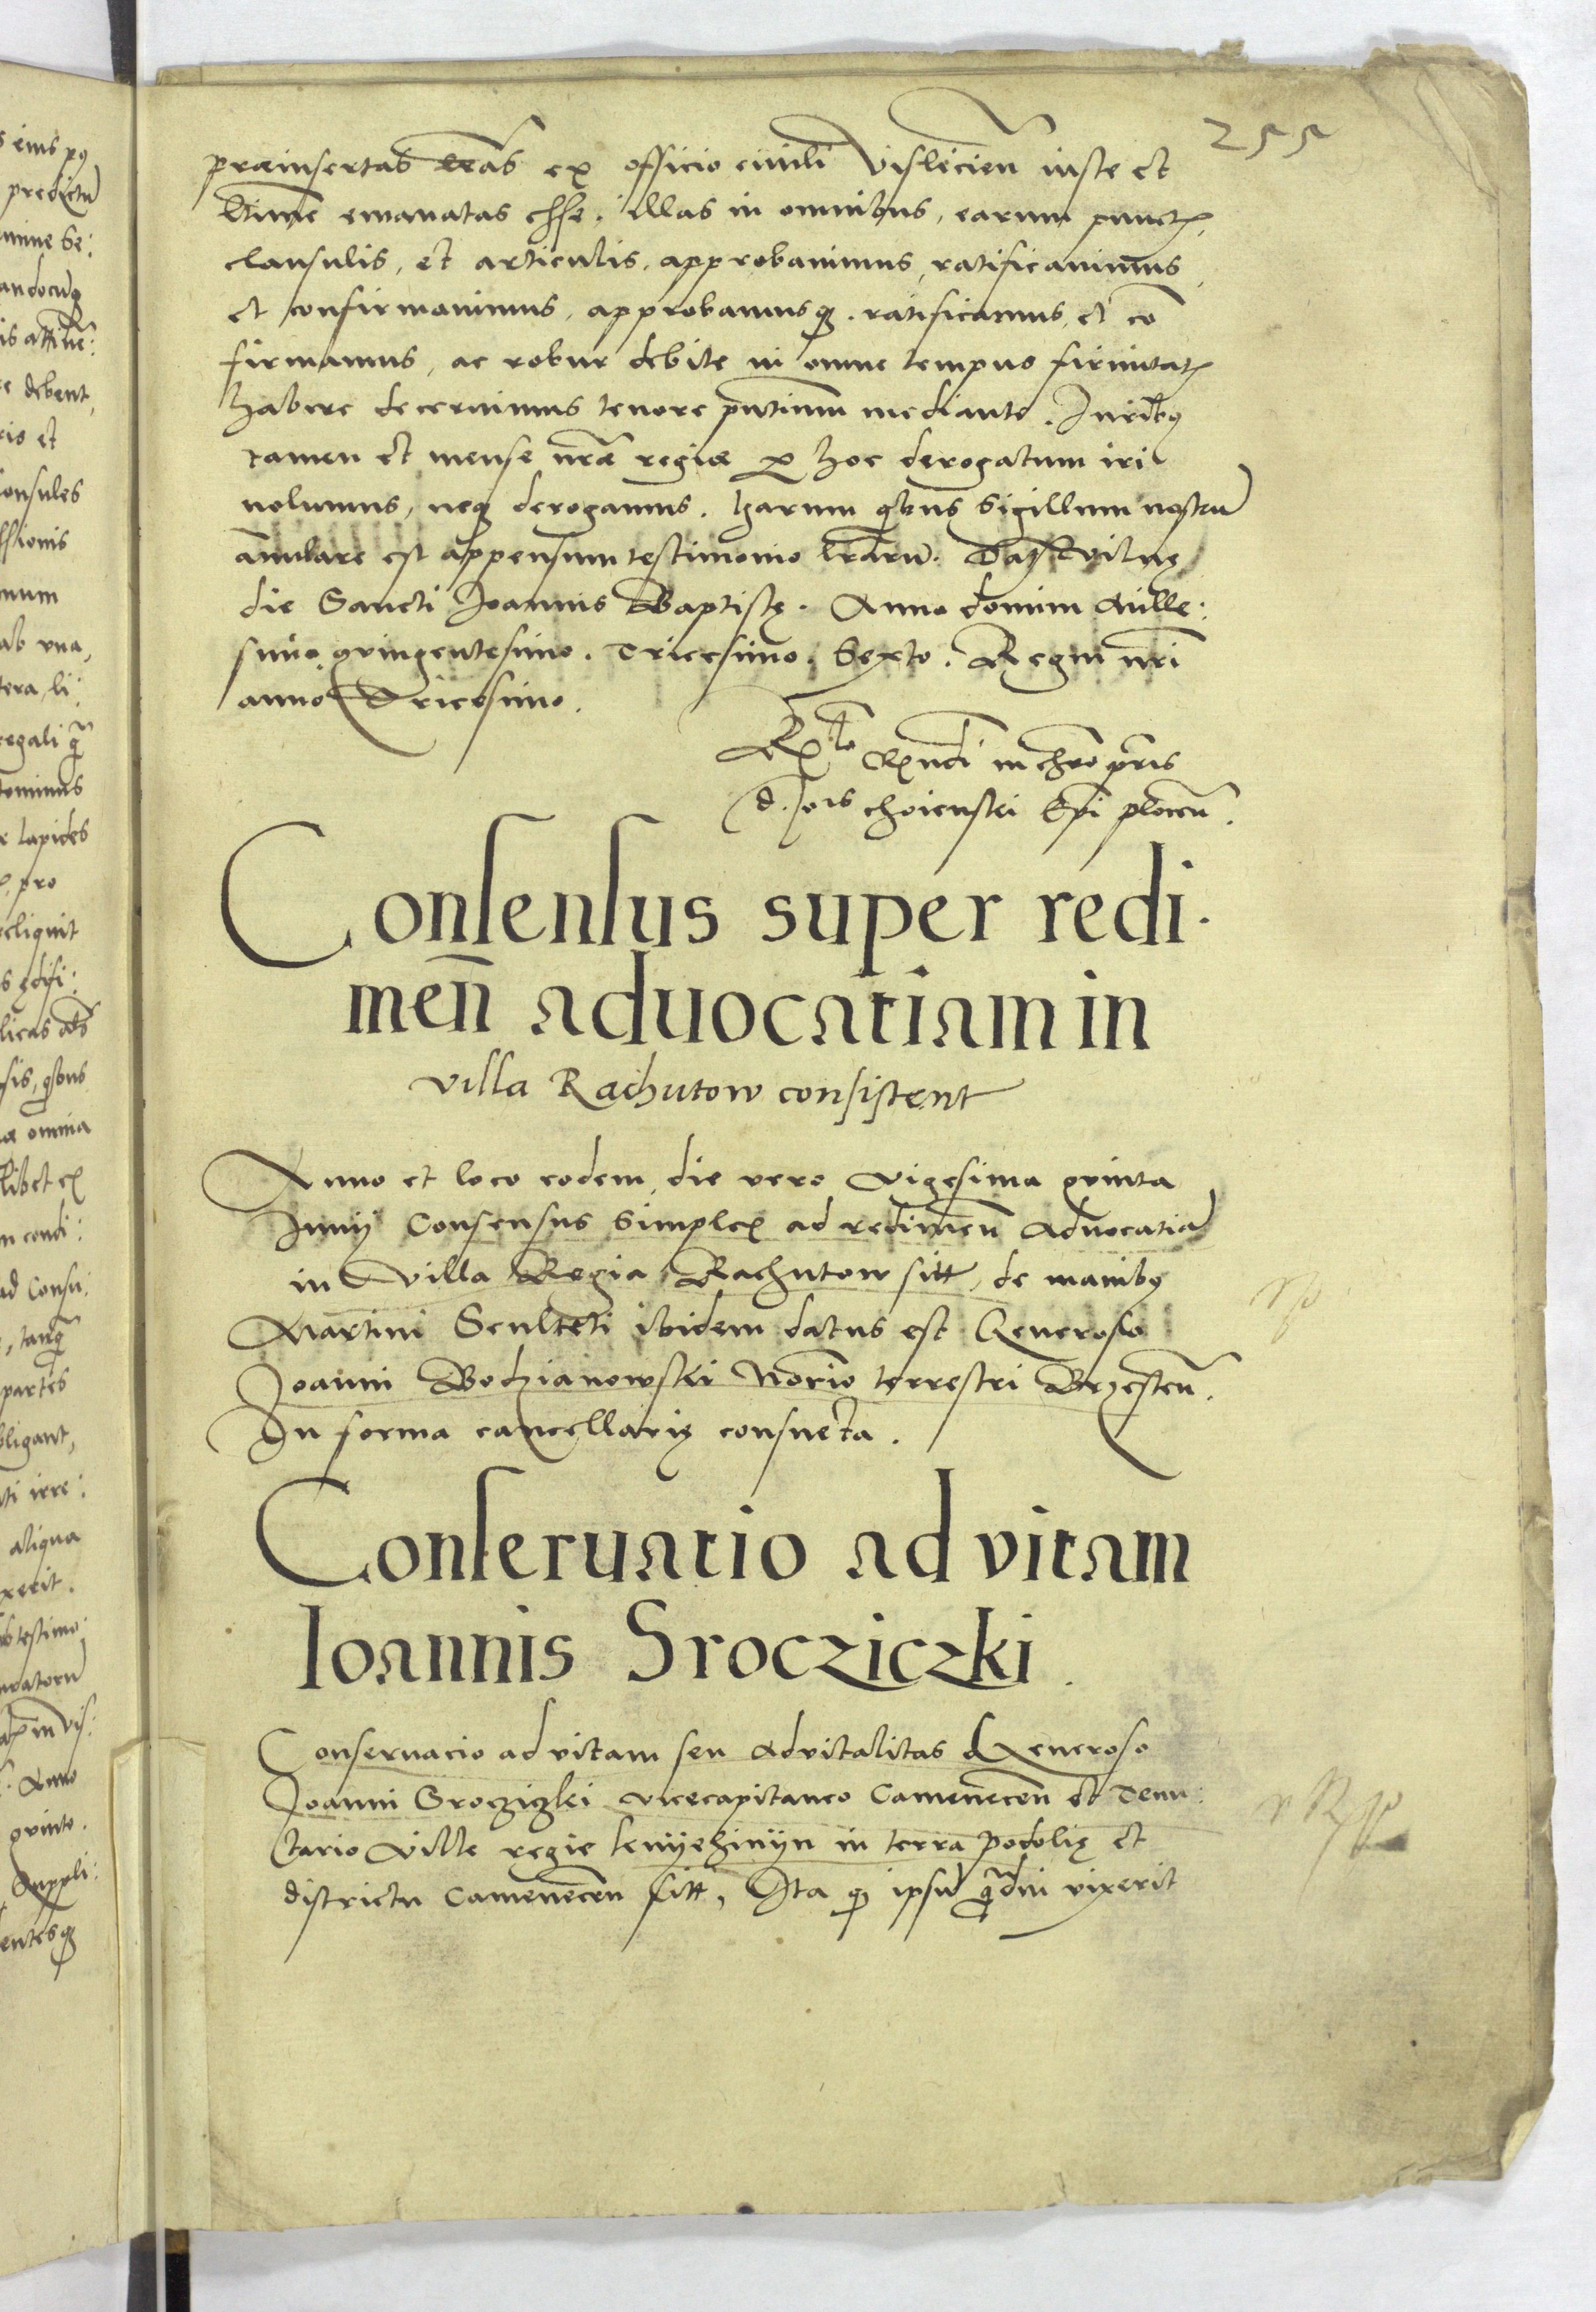 255
præinsertas lr̃as ex officio ciuili Vislicien̄ iuste et
l̃time emanatas esse. illas in omnibus, earum punctꝭ,
clausulis, et articulis, approbauimus, ratificauimus,
et confirmauimus, approbamusqꝫ. ratificamus, et cō
firmamus, ac robur debite in omne tempus firmitatꝭ
habere decernimus tenore pn̄tium mediante. Iuribꝰ
tamen et mense nr̃æ regiæ ꝑ hoc derogatum iri
nolumus, neqꝫ derogamus. harum quibus Sigillum nostrū
annulare est appensum testimonio l̃rarū. Datꝭ Vilnę
die Sancti Joannis Baptistę. Anno domini Mille:
simo quingentesimo. Tricesimo. Sexto. Regni nr̃i
anno Tricesimo.
Rx̃lo Rx̄ndi in chr̃o pr̃is
d. Jo̅is choienski Ep̃i plocen̄.
Consensus super redi.
men̄ aduocatiam in
villa Rachutow consistent
Anno et loco eodem, die vero vigesima quinta
Junij Consensus Simplex ad redimen̄ Aduocatiā
in Villa Regia Rachutow sitt̃, de manibꝰ
Martini Sculteti ibidem datus est Generoso
Joanni Bodzianowski Notr̃io terrestri Brzesten̄.
In forma cancellarię consueta.
Conseruatio ad vitam
Ioannis Srocziczki.
Conseruacio ad vitam seu Aduitalitas Generoso
Joanni Srocziczki vicecapitaneo Camenecen̄ et Tenu:
tario Ville regie in terra podolię et
districtu Camenecen̄ sitt̃, Ita qꝫ ipsū quãdiu vixerit